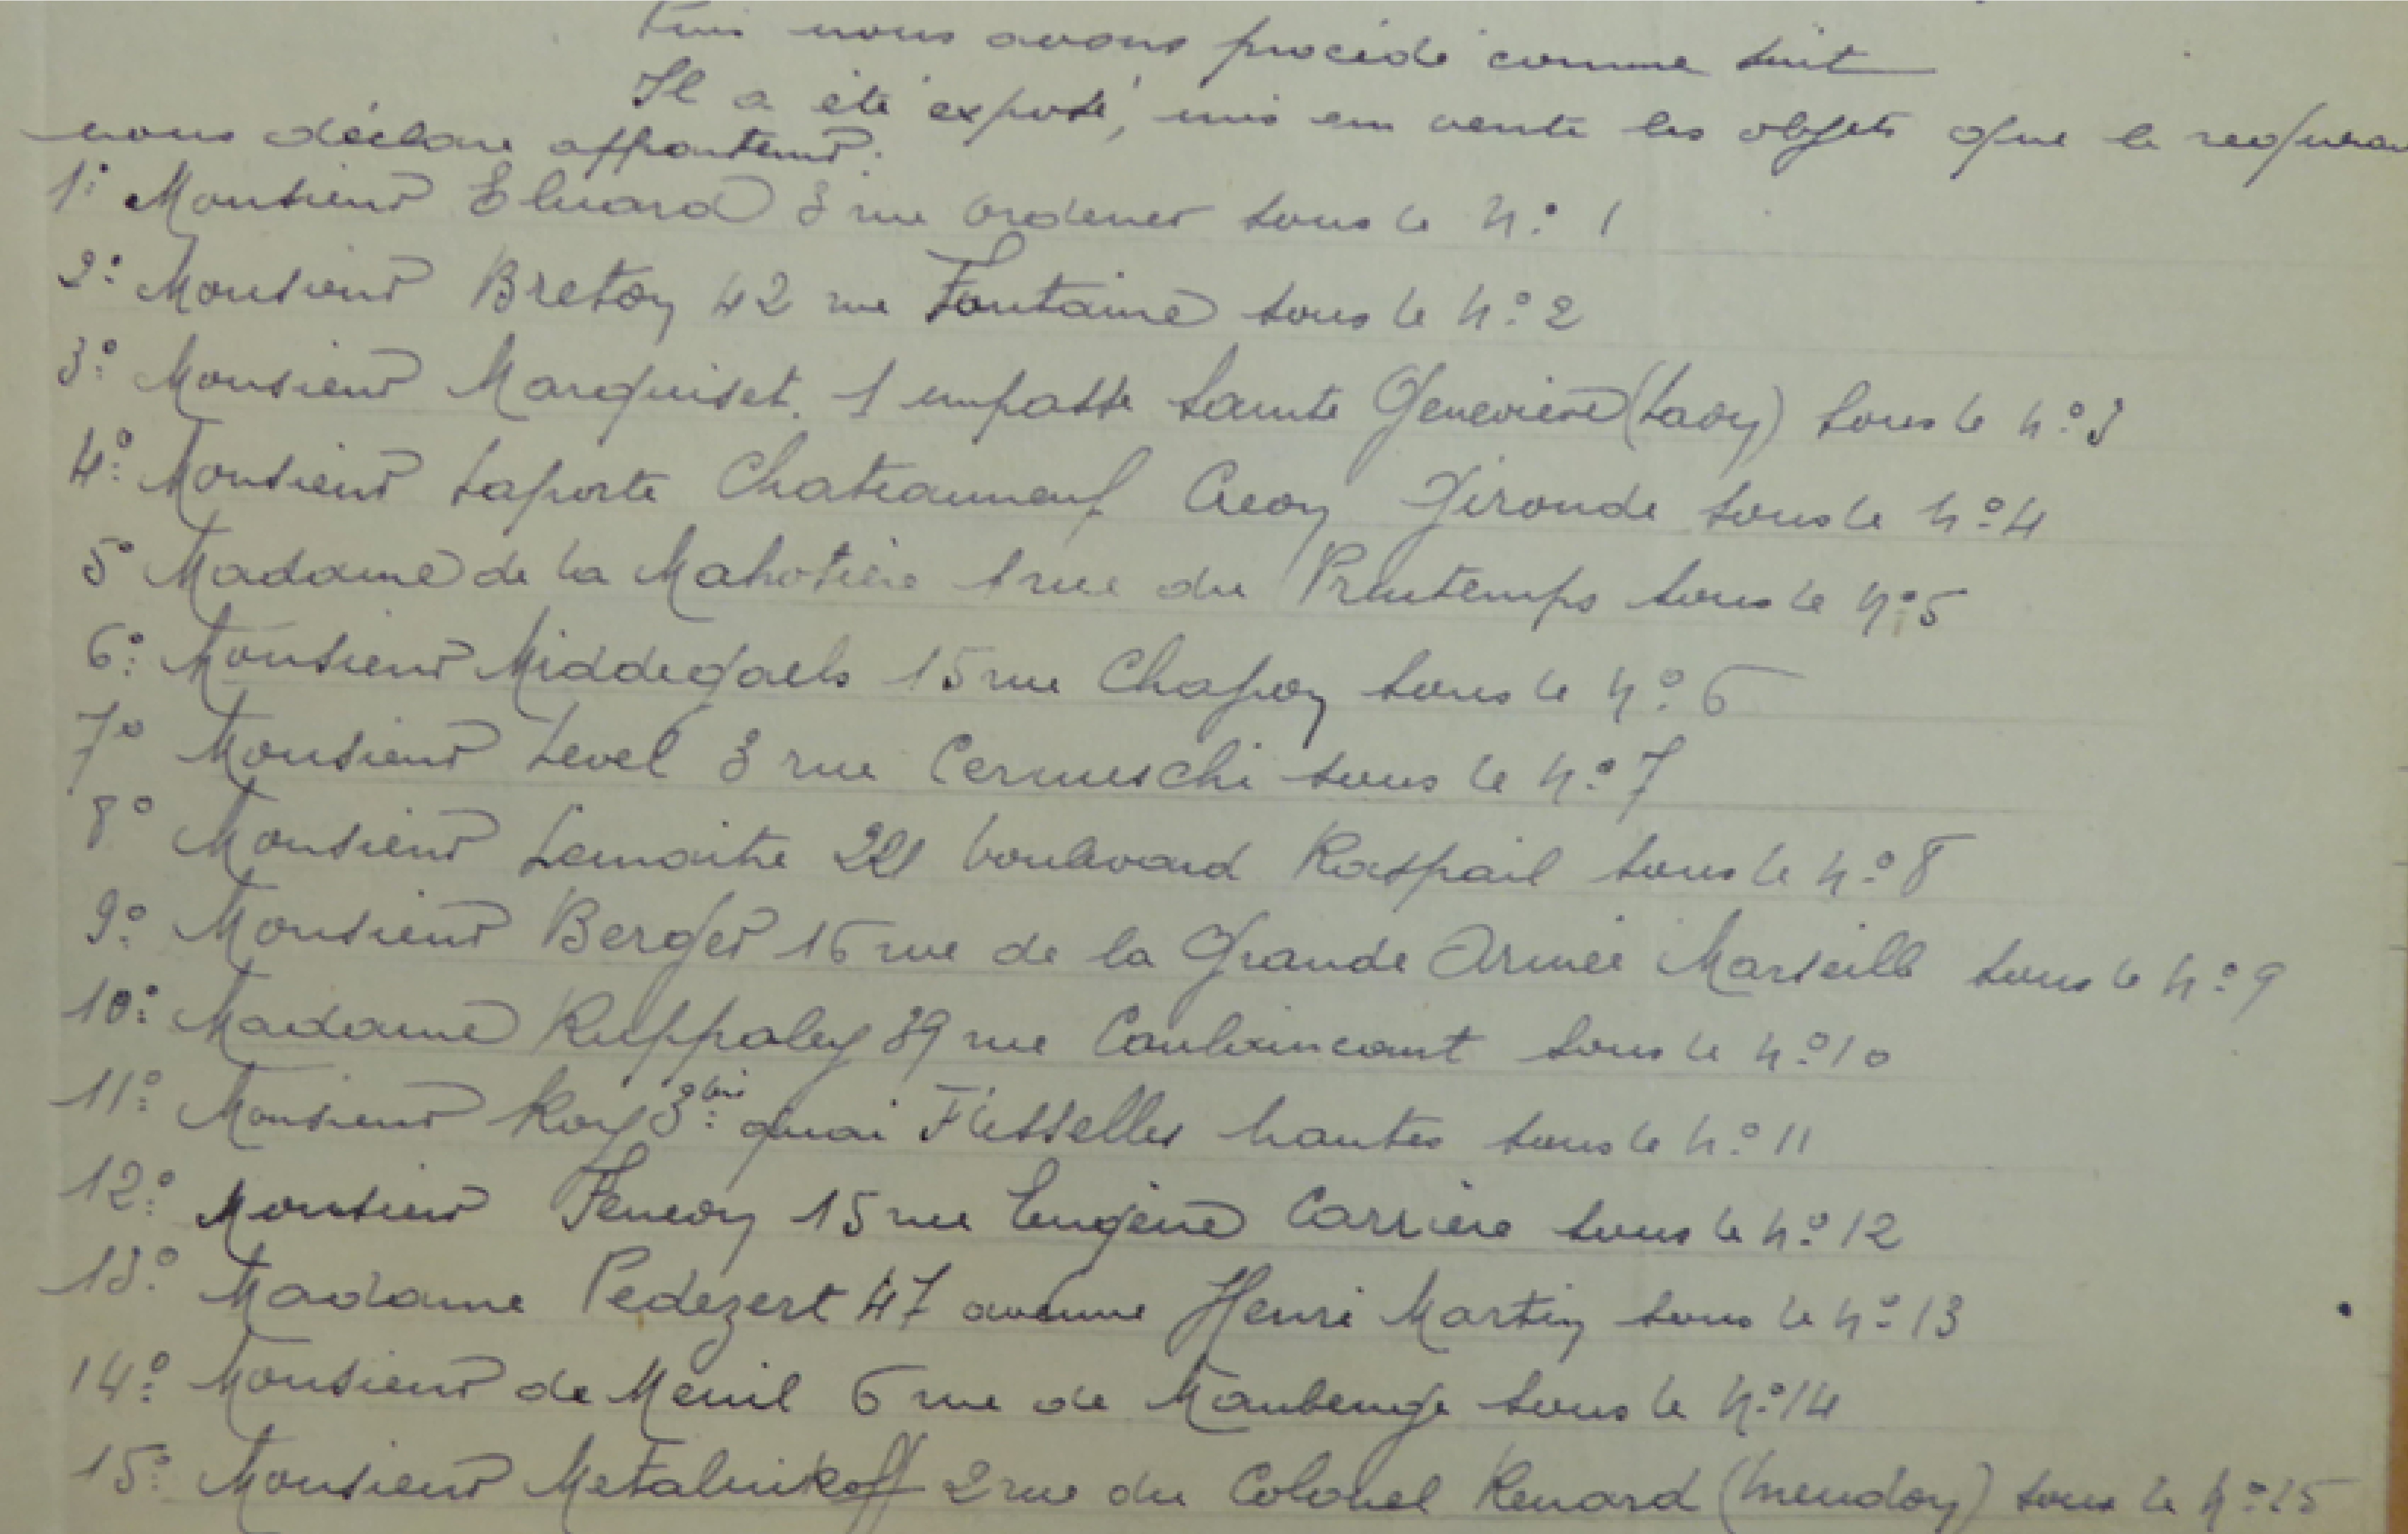 Puis nous avons procédé comme suit
Il a été exposé, mis en vente les objets que le requéran
nous déclare appartenir.
1° Monsieur Eluard 3 rue Ordener sous le n° 1
2° Monsieur Breton 42 rue Fontaine sous le n° 2
3° Monsieur Marquiset. 1 impasse Sainte Geneviève (Laon) sous le n° 3
4° Monsieur Laporte Chateauneuf Creon Gironde sous le n° 4
5° Madame de la Mahotière 1 rue du Printemps sous le n° 5
6° Monsieur Middegaels 15 rue Chapon sous le n° 6
7° Monsieur Level 3 rue Cernuschi sous le n° 7
8° Monsieur Lemaitre 221 boulevard Raspail sous le n° 8
9° Monsieur Berger 16 rue de la Grande Armée Marseille sous le n° 9
10° Madame Ruppaley 39 rue Caulaincourt sous le n° 10
11° Monsieur Roy 3 bis quai Flesselles Nantes sous le n° 11
12° Monsieur Feneon 15 rue Eugène Carrière sous le n° 12
13° Madame Pedezert 47 avenue Henri Martin sous le n° 13
14° Monsieur de Menil 6 rue de Maubeuge sous le n° 14
15° Monsieur Metalnikoff 2 rue du Colonel Renard (Meudon) sous le n° 15